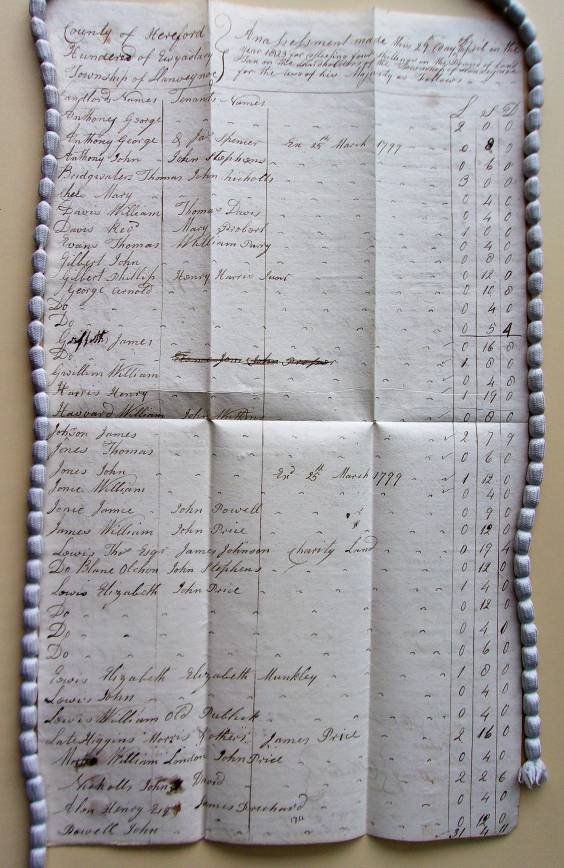 County of Hereford
Hundered of Ewyaslacy
Township of Llanveynoe
An assessment made this 29 Day April in the
year 1823 for Shillings in the Pound of Land
on the of the Township of
for the use of his Majesty as Follows
Landlords Names Tenants Names
L S D
Anthoney George 2 0 0
Anthony George & Jas Spencer Ex 25th March 1799 0 8 0
Anthony John John Stephens 0 6 0
Bridgwaters Thomas John Nicholls 3 0 0
Mary 0 4 0
Davis William Thomas Davis 0 4 0
Davis Mary Probert 1 0 0
Evans Thomas William Parry 0 4 0
Gilbert John 0 8 0
Gilbert Phillip Henry Harris 0 12 0
George Arnold 0 10 8
Do 0 4 0
Do 0 5 4
James 0 16 8
Do 1 8 0
Gwillim William 0 4 8
Harris Henry 1 19 0
Havvard William John 0 8 0
Johnson James 2 7 9
Jones Thomas 0 6 0
Jones John Ex 25th March 1799 1 12 0
William 0 4 0
John Powell 0 9 0
James William John Price 0 12 0
Lewis Thos Esqr James Johnson Charity Land 0 19 4
Do Blane Olchon John Stephens 0 12 0
Lewis Elizabeth John Price 1 4 0
Do 0 12 0
Do 0 4 0
Do 0 6 0
Lewis Elizabeth Elizabeth Munkley 1 8 0
Lewis John 0 4 0
Lewis William Old 0 4 0
Late Higgins Morris James Price 2 16 0
William London John Price 0 4 0
Nicholls John 2 2 6
Henry Esqr James Prichard 0 4 0
Powell John 0 12 0
31 4 11